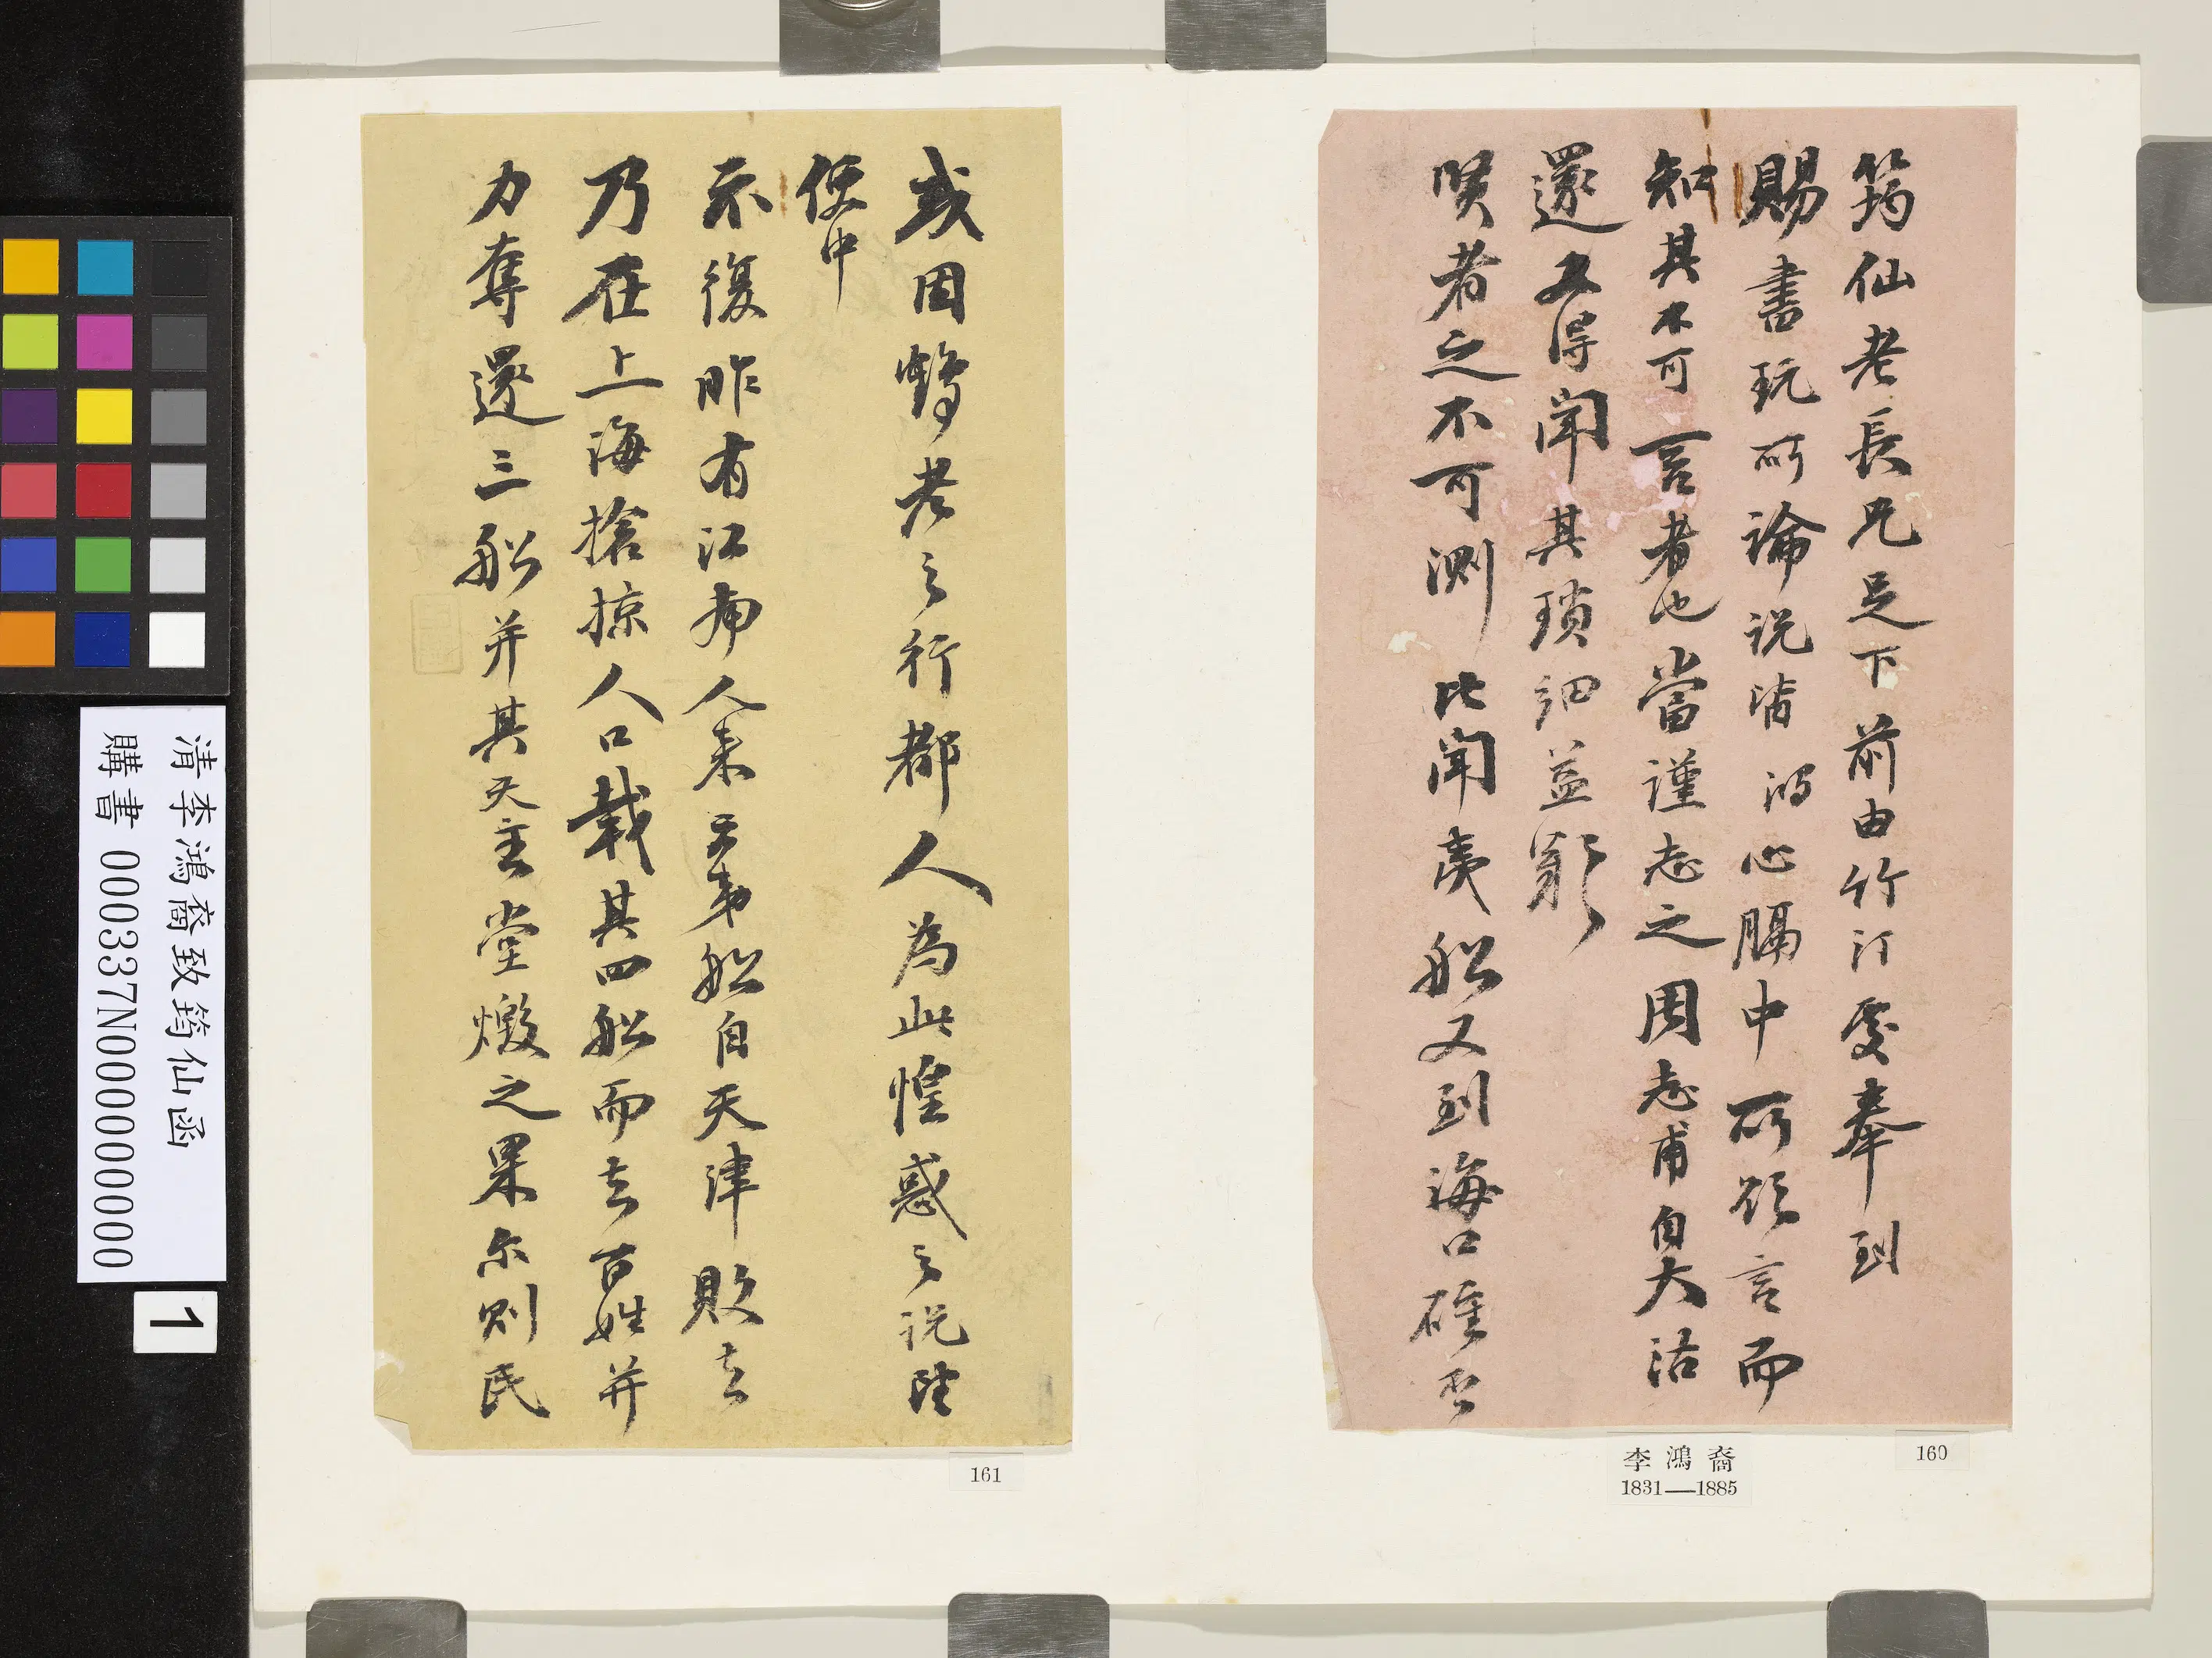 筠仙老長兄足下前由竹汀處奉到
賜書玩所論說皆鴻心膈中所欲言而
知其不可言者也當謹志之周志甫自大沽
還又得聞其瑣細益歎
賢者之不可測比聞夷船又到海口確否
或因鶴老之行都人為此惶惑之說望
便中
示復昨有江南人來云弟船自天津敗去
乃在上海搶掠人口載其四船而去百姓并
力奪還三船并其天主堂燬之果尔則民
李鴻裔
1831—1885
160
161
清李鴻裔致筠仙函
購書 000337N000000000
1